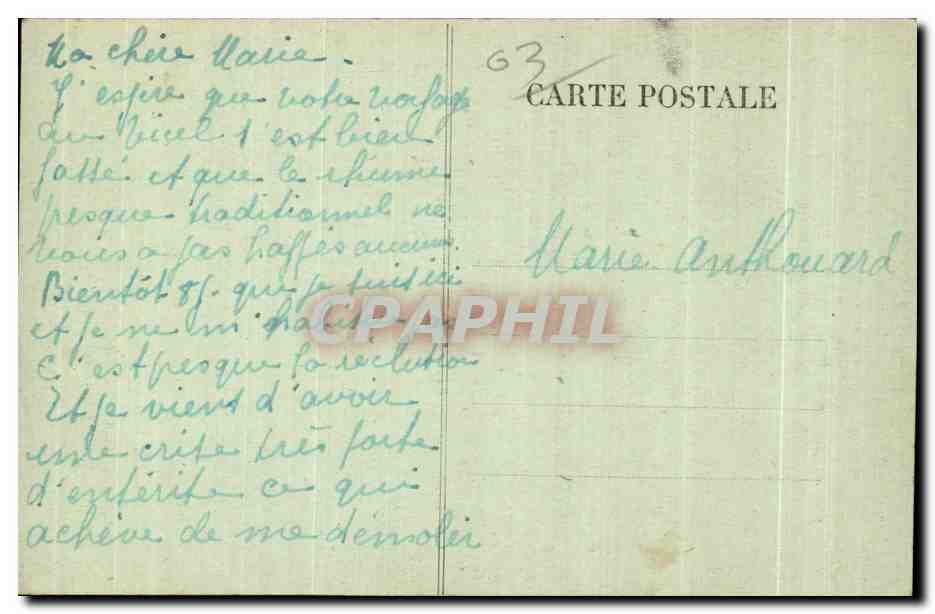 Ma chère Marie.
J'espère que votre voyage
au Vicel s'est bien
passé et que le rhume
presque traditionnel ne
vous a pas
Bientôt 8j. que je suis ici
et je ne m'habitue pas
C'est presque la réclution
Et je viens d'avoir
une crise très forte
d'entérite ce qui
achève de me démolir
63
CARTE POSTALE
Marie Anthouard
CPAPHIL